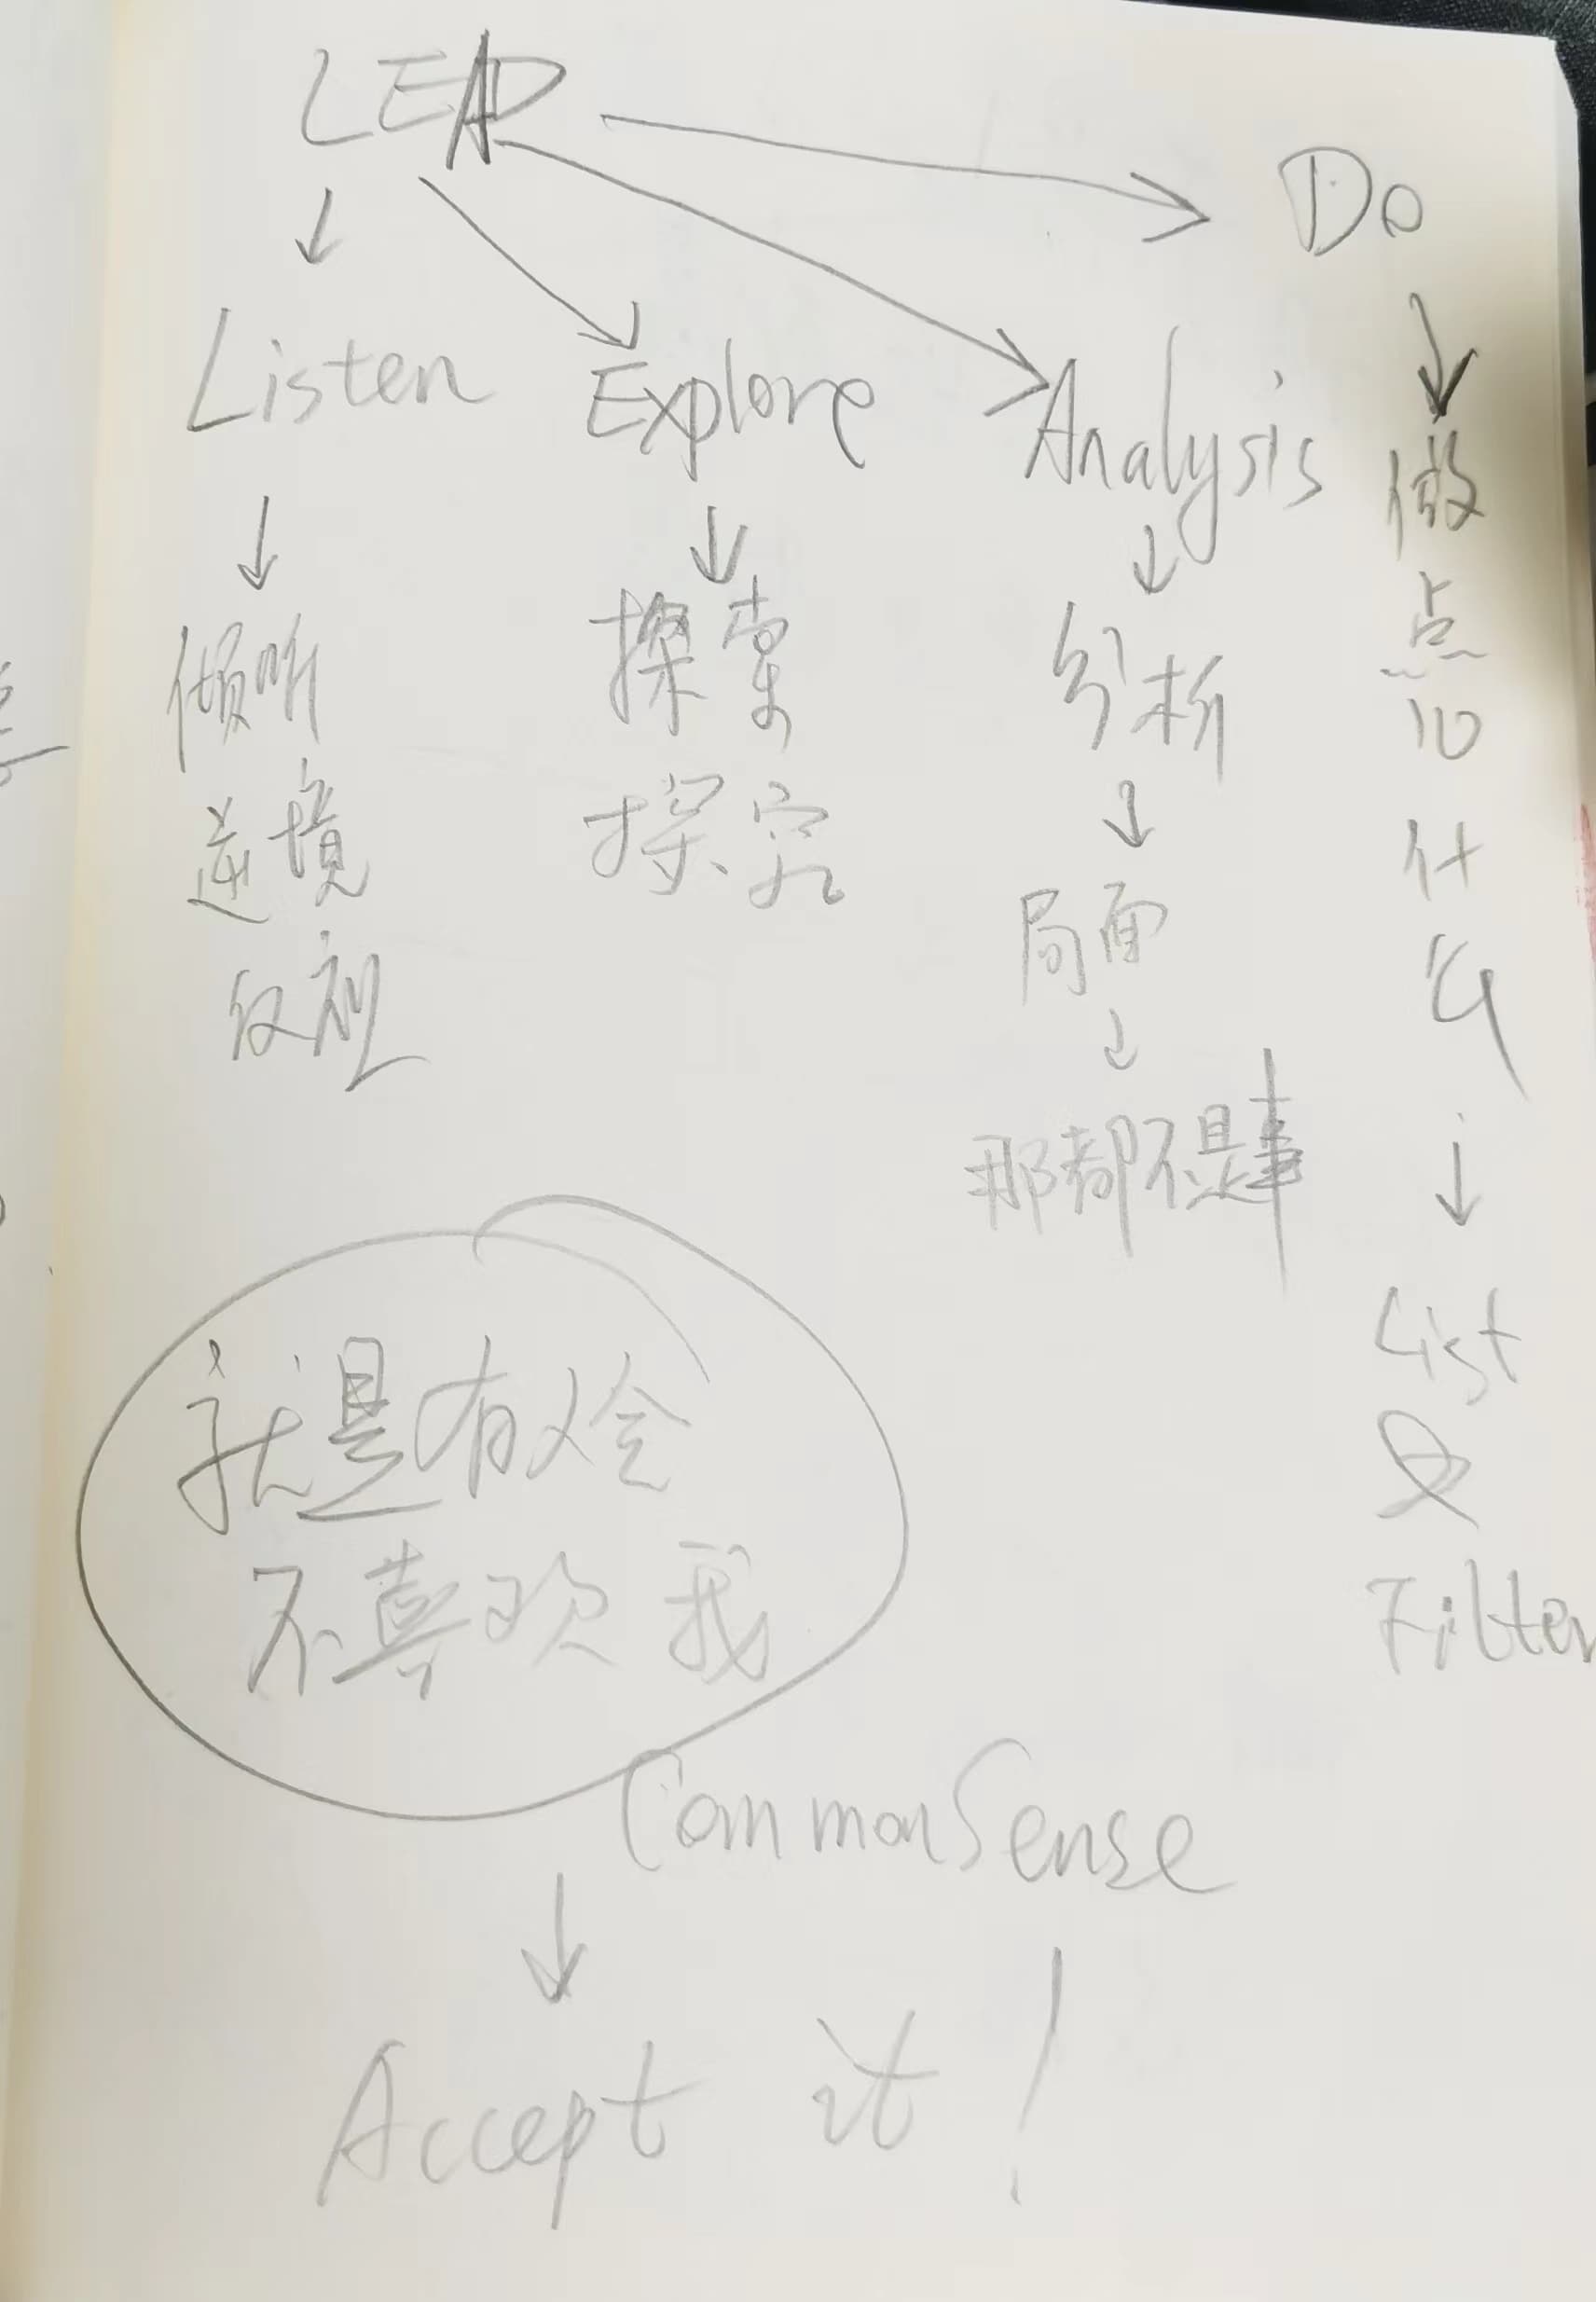 LEAD
Do
Listen
Explore
Analysis
倾听
逆境
探索
探究
分析
局面
那都不是事
做
点
什
么
List
&
Filter
就是有人会
不喜欢我
Common Sense
Accept it!